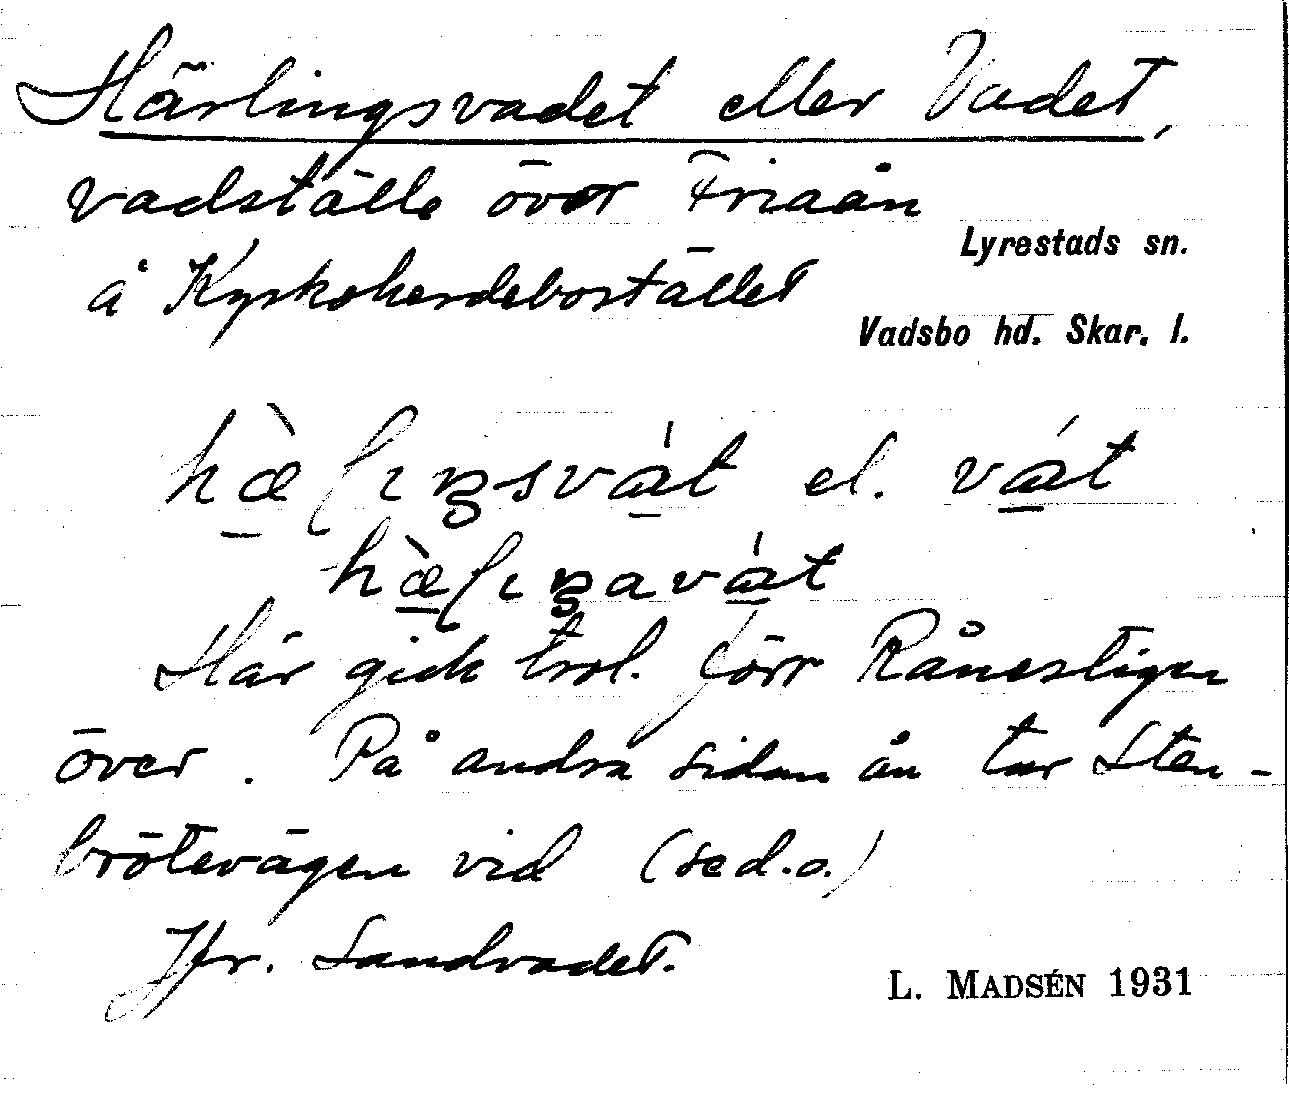 Härlingsvadet eller Vadet,
vadställe över Friaån
Lyrestads sn.
å Kyrkoherdebostället
Vadsbo hd. Skar. l.
hæ̀ſıŋsvát el. vát
hæ̀ſıŋavát
Här gick trol. förr Rånestigen
över. På andra sidan ån tar Sten-
brötevägen vid (se d.o.)
Jfr. Sandvadet.
L. MADSÉN 1931